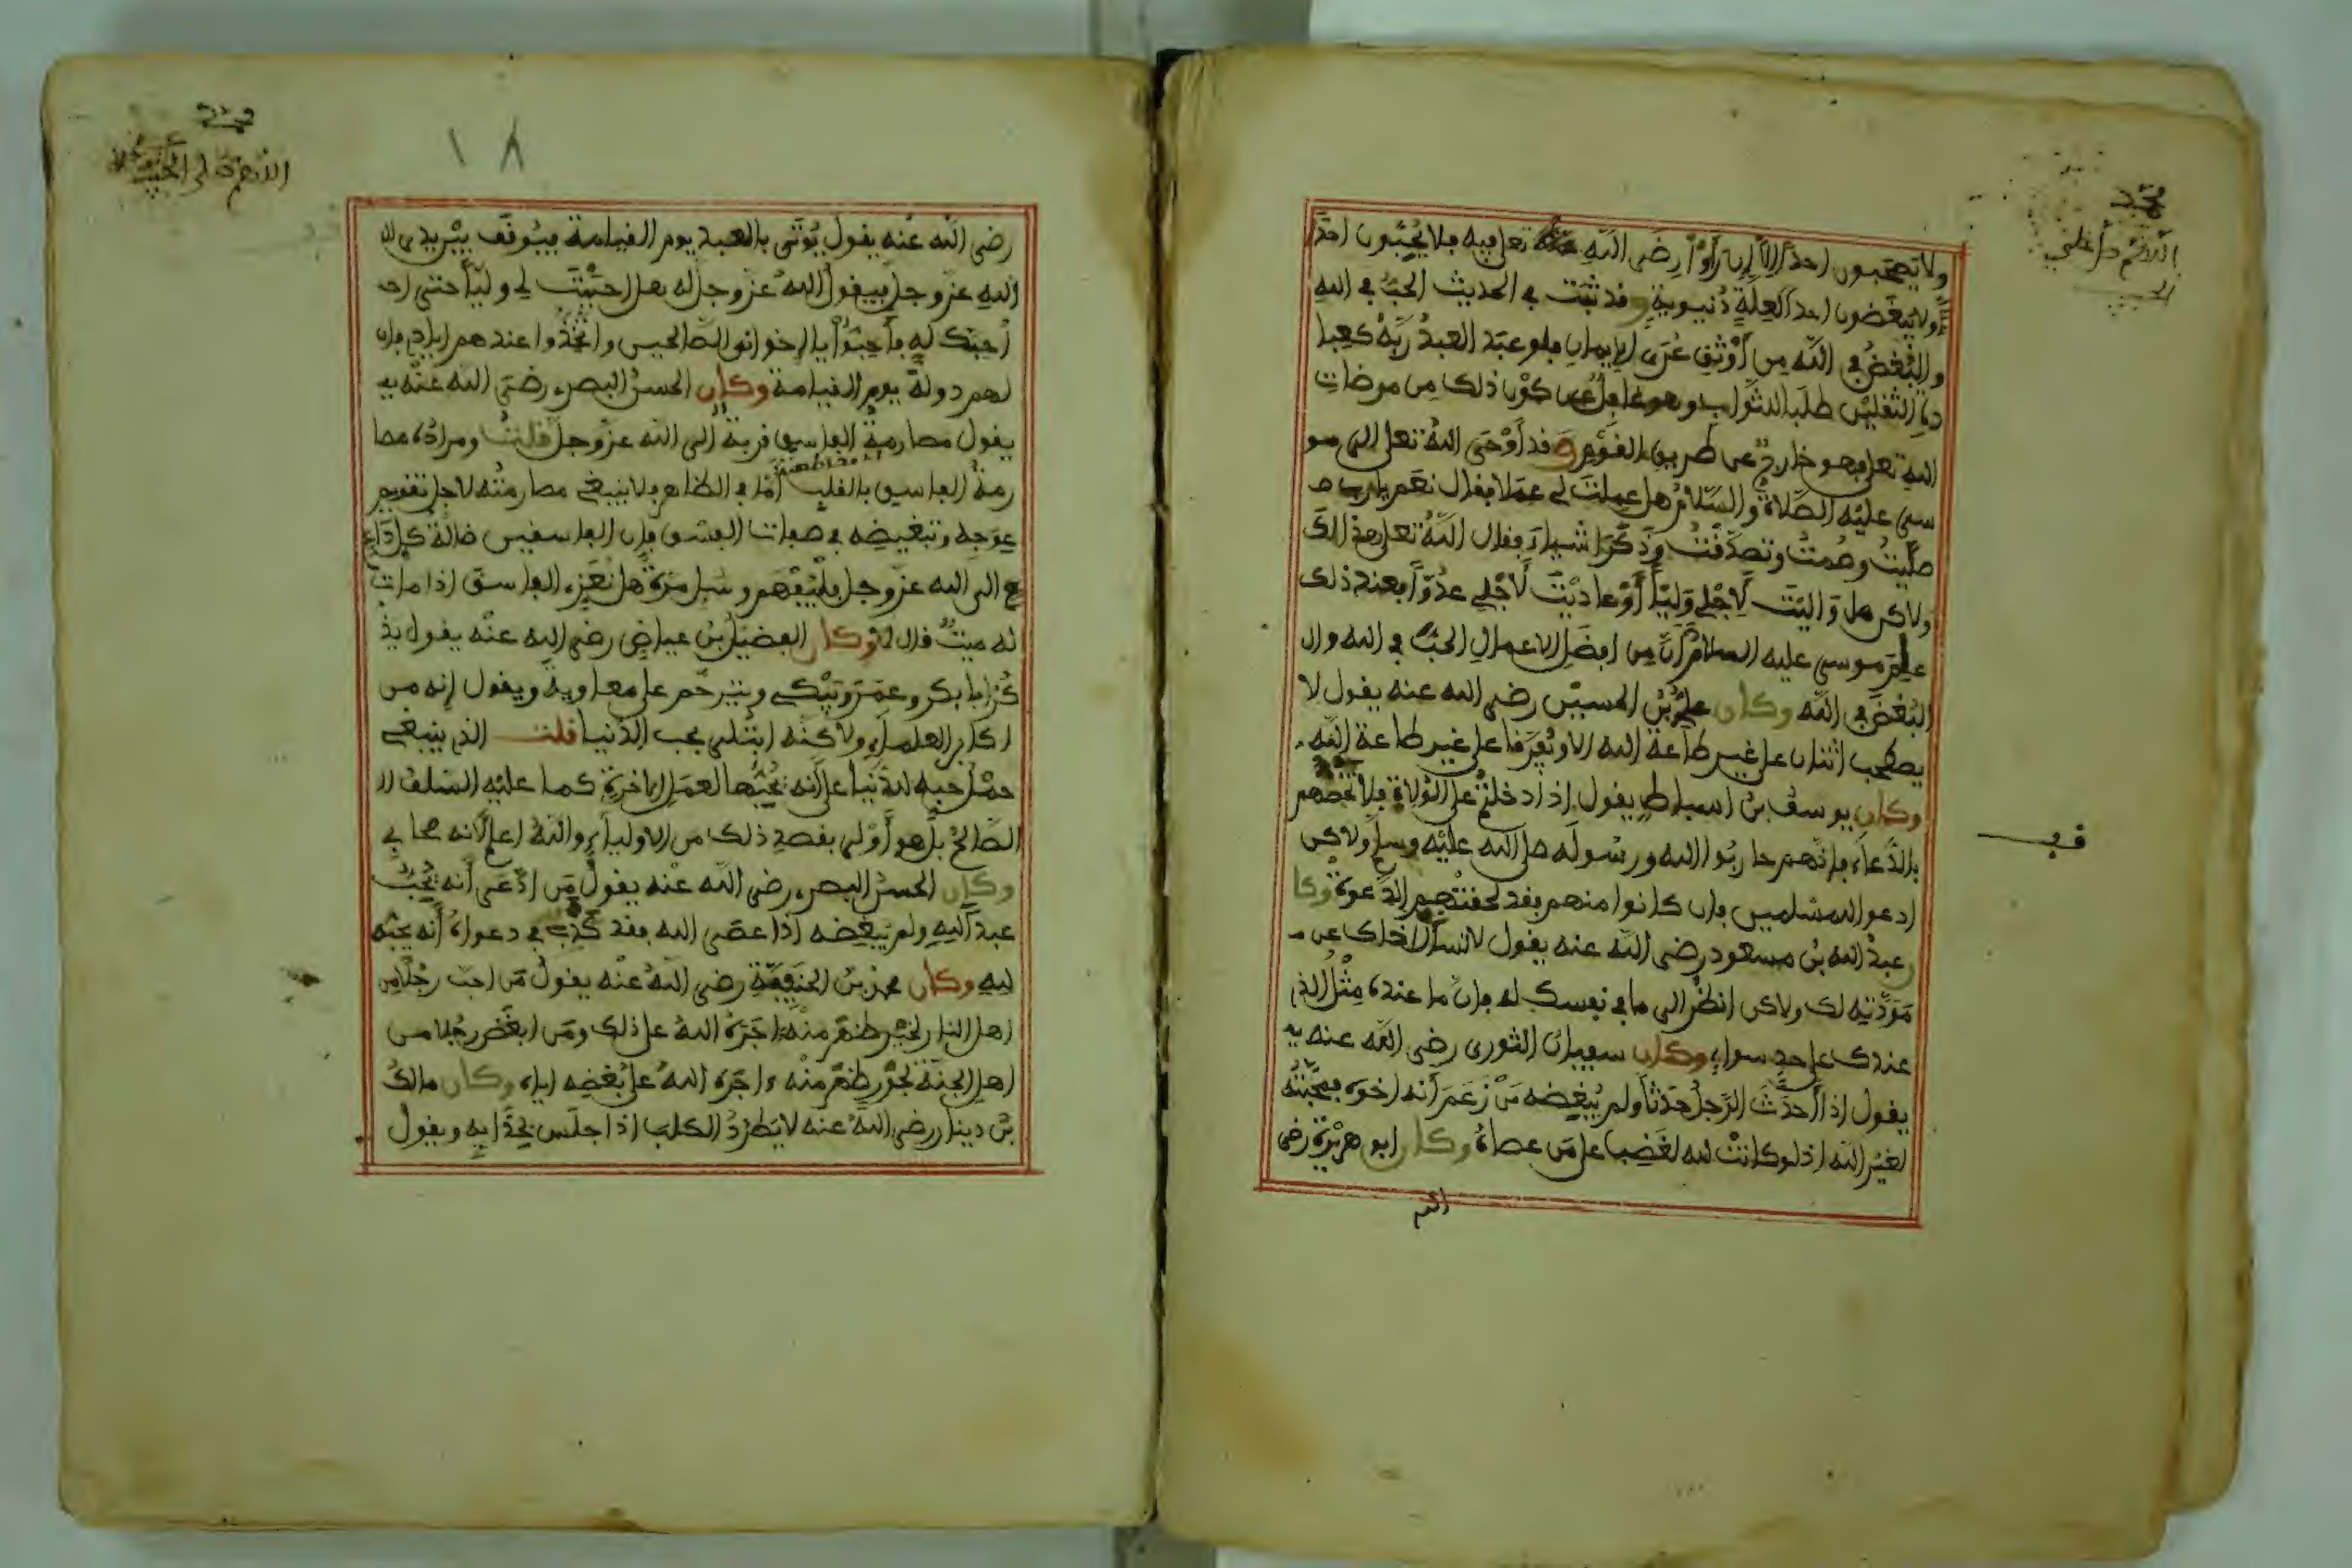 محمد
اللهم صل على
الحبيب
ولا يصحبون احدا الا ان راوا رضى الله تعلى فيه فلا يحبون احدا
ولا يبغضون احدا لعلة دنيوية وفد ثبت في الحديث الحب في الله
والبغض في الله من أوثق عرى الايمان فلو عبد العبد ربه كعبا
دة الثفلين طلبا للثواب وهو غافل عن كون ذلك من مرضات
الله تعلى فهو خارج عن طريق الفوم وفد أوحى الله تعلى الى مو
سى عليه الصلاة والسلام هل عملت لي عملا ففال نعم يارب
صليت وصمت وتصدفت وذكر اشياء ففال الله تعلى هذا لك
ولاكن هل واليت لأجلي وليا أو عاديت لأجلي عدوا فعند ذلك
علم موسى عليه السلام أن من افضل الاعمال الحب في الله وال
البغض في الله وكان علي بن الحسين رضى الله عنه يفول لا
يصطحب اثنان على غير طاعة الله الا وتفرفا على غير طاعة الله
وكان يوسف بن اسباط يفول اذا دخلتم على الولاة فلا تخصهم
بالدعاء فإنهم حاربوا الله ورسوله صلى الله عليه وسلم ولاكن
ادعوا للمسلمين فان كانوا منهم ففد لحفتهم الدعوة وكا
ن عبد الله بن مسعود رضى الله عنه يفول لا تسأل اخاك عن
مودته لك ولاكن انظر الى ما في نفسك له فان ما عنده مثل الذي
عندك على حد سواء وكان سفيان الثورى رضى الله عنه
يفول اذا أحدث الرجل حدثا ولم يبغضه من زعم أنه اخوه فمحبته
لغير الله اذ لو كانت لله لغضب على من عصاه وكان ابو هريرة رضى
الله
فف
محمد
اللهم صل على الحبيب
١٨
رضى الله عنه يفول يوتى بالعبد يوم الفيامة فيوفف بين يدي
الله عز وجل فيفول الله عز وجل له هل احببت لي وليا حتى
أحبك له فأحبوا يا اخوانى الصالحين واتخذوا عندهم ايادي فان
لهم دولة يوم الفيامة وكان الحسن البصرى رضى الله عنه
يفول مصارمة الفاسق فربة الى الله عز وجل فلت ومراده مصا
رمة الفاسق بالفلب أما في الظاهر فلا ينبغى مصارمته لاجل تفويم
عوجه وتبغيضه في صفات الفسق فان الفاسفين ضالة كل داع
الى الله عز وجل فليفهم وسئل مرة هل نعزي الفاسق اذا مات
له ميت فال لا وكان الفضيل بن عياض رضى الله عنه يفول يذ
كر ابا بكر وعمر ويبكي ويترحم على معاوية ويفول إنه من
اكابر العلماء ولاكنه ابتلى بحب الدنيا فلت الذي ينبغى
حمل حبه للدنيا على أنه يحبها لعمل الاخرة كما عليه السلف ال
الصالح بل هو أولى بفصد ذلك من الاولياء والله اعلم لانه صحابي
وكان الحسن البصرى رضى الله عنه يفول من ادعى أنه يحب
عبدا لله ولم يبغضه اذا عصى الله ففد كذب في دعواه أنه يحبه
لله وكان محمد بن الحنفية رضى الله عنه يفول من احب رجلا من
اهل النار لخير ظهر منه اجره الله على ذلك ومن ابغض رجلا من
اهل الجنة لجور ظهر منه اجره الله على بغضه اياه وكان مالك
بن دينار رضى الله عنه لا يطرد الكلب اذا جلس بحذايه ويفول